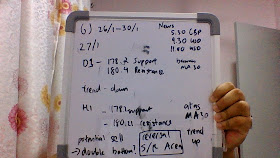 6) 26/1-30/1
News
5.30 GBP
9.30 USD
11.00 USD
27/1
D1 - 178.2 support
180.4 Resistance
MA 30
Trend - down
H1 - 178.1 support
180.21 resistance
MA30
trend
up
potential sell
double bottom?
reversal
S/R Area